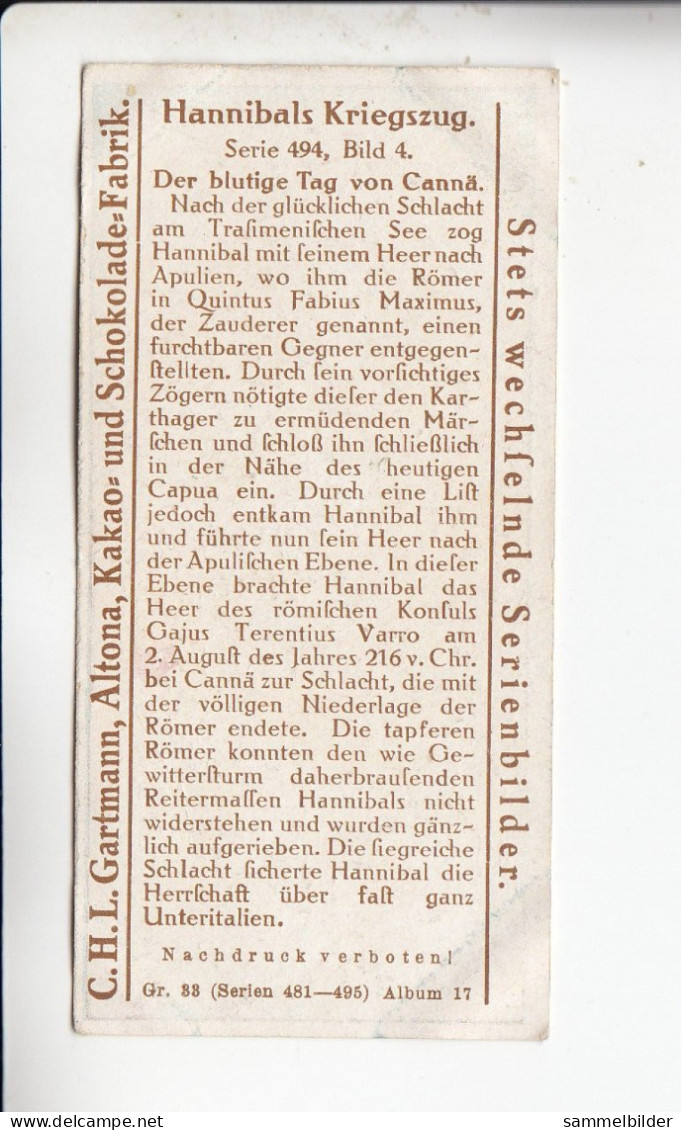 Hannibals Kriegszug.
Serie 494, Bild 4.
Der blutige Tag von Cannä.
Nach der glücklichen Schlacht
am Traſimeniſchen See zog
Hannibal mit ſeinem Heer nach
Apulien, wo ihm die Römer
in Quintus Fabius Maximus,
der Zauderer genannt, einen
furchtbaren Gegner entgegen-
ſtellten. Durch ſein vorſichtiges
Zögern nötigte dieſer den Kar-
thager zu ermüdenden Mär-
ſchen und ſchloß ihn ſchließlich
in der Nähe des heutigen
Capua ein. Durch eine Liſt
jedoch entkam Hannibal ihm
und führte nun ſein Heer nach
der Apuliſchen Ebene. In dieſer
Ebene brachte Hannibal das
Heer des römiſchen Konſuls
Gajus Terentius Varro am
2. Auguſt des Jahres 216 v. Chr.
bei Cannä zur Schlacht, die mit
der völligen Niederlage der
Römer endete. Die tapferen
Römer konnten den wie Ge-
witterſturm daherbrauſenden
Reitermaſſen Hannibals nicht
widerſtehen und wurden gänz-
lich aufgerieben. Die ſiegreiche
Schlacht ſicherte Hannibal die
Herrſchaft über faſt ganz
Unteritalien.
Nachdruck verboten!
Gr. 33 (Serien 481—495) Album 17
C.H.L. Gartmann, Altona, Kakao- und Schokolade-Fabrik.
Stets wechſelnde Serienbilder.
My-first-collection.com
sammelbilder